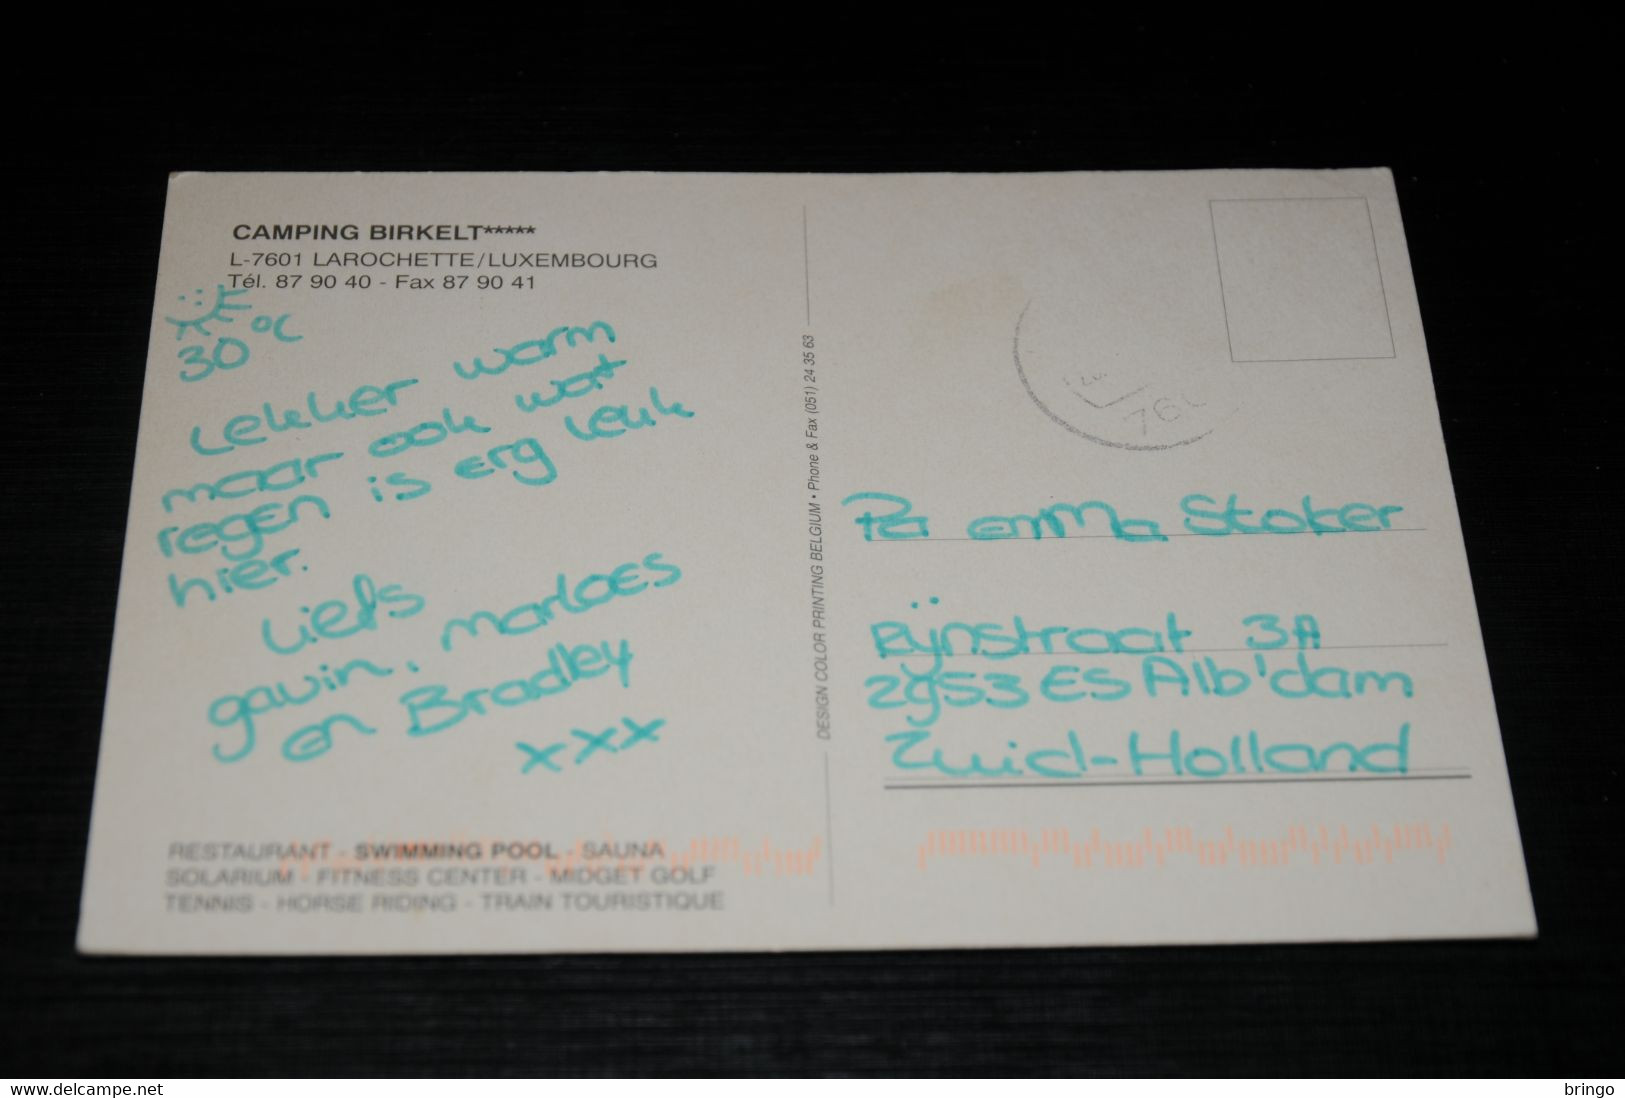 CAMPING BIRKELT*****
L-7601 LAROCHETTE/LUXEMBOURG
Tél. 87 90 40 - Fax 87 90 41
30 °C
Lekker warm
maar ook wat
regen is erg leuk
hier.
Liefs
gavin, marloes
en Bradley
xxx
RESTAURANT - SWIMMING POOL - SAUNA
SOLARIUM - FITNESS CENTER - MIDGET GOLF
TENNIS - HORSE RIDING - TRAIN TOURISTIQUE
DESIGN COLOR PRINTING BELGIUM • Phone & Fax (051) 24 35 63
emma Stoker
Rijnstraat 3A
2953 ES Alb'dam
Zuid-Holland
delcampe.net
bringo